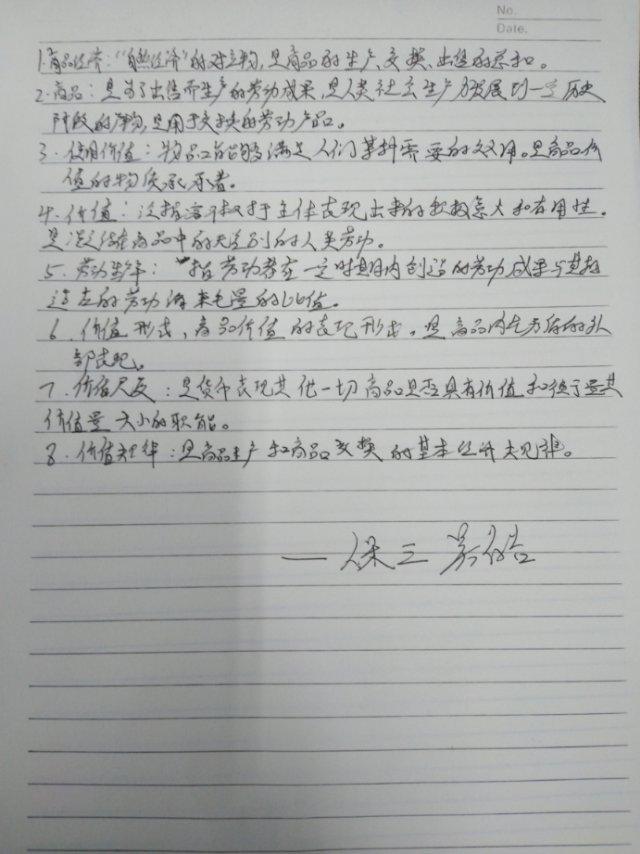 No.
Date.
1.商品经济:"自然经济"的对立物,是商品的生产、交换、出售的总和。
2.商品:是为了出售而生产的劳动成果,是人类社会生产力发展到一定历史
阶段的产物,是用于交换的劳动产品。
3.使用价值:物品能够满足人们某种需要的效用。是商品价
值的物质承担者。
4.价值:泛指客体对于主体表现出来的积极意义和有用性。
是凝结在商品中的无差别的人类劳动。
5.劳动生产率:指劳动者在一定时期内创造的劳动成果与其相
适应的劳动消耗量的比值。
6.价值形式:商品价值的表现形式,是商品内在矛盾的外
部表现。
7.价值尺度:是货币表现其他一切商品是否具有价值和衡量其
价值量大小的职能。
8.价值规律:是商品生产和商品交换的基本经济规律。